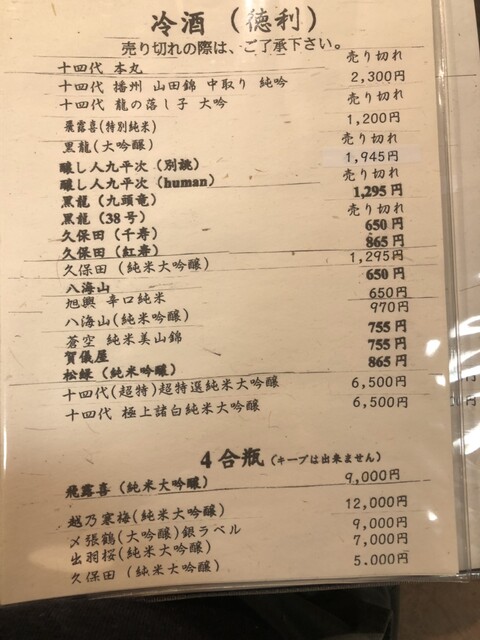 冷酒（徳利）
売り切れの際は、ご了承下さい。
十四代 本丸 売り切れ
十四代 播州 山田錦 中取り 純吟 2,300円
十四代 龍の落し子 大吟 売り切れ
飛露喜(特別純米) 1,200円
黒龍(大吟醸) 売り切れ
醸し人九平次（別誂） 1,945円
醸し人九平次（human） 売り切れ
黒龍（九頭竜） 1,295円
黒龍（38号） 売り切れ
久保田（千寿） 650円
久保田（紅寿） 865円
久保田（純米大吟醸） 1,295円
八海山 650円
旭興 辛口純米 650円
八海山(純米吟醸) 970円
蒼空 純米美山錦 755円
賀儀屋 755円
松緑（純米吟醸） 865円
十四代(超特)超特選純米大吟醸 6,500円
十四代 極上諸白純米大吟醸 6,500円
4合瓶（キープは出来ません）
飛露喜（純米大吟醸） 9,000円
越乃寒梅(純米大吟醸) 12,000円
〆張鶴(大吟醸)銀ラベル 9,000円
出羽桜(純米大吟醸) 7,000円
久保田（純米大吟醸） 5.000円